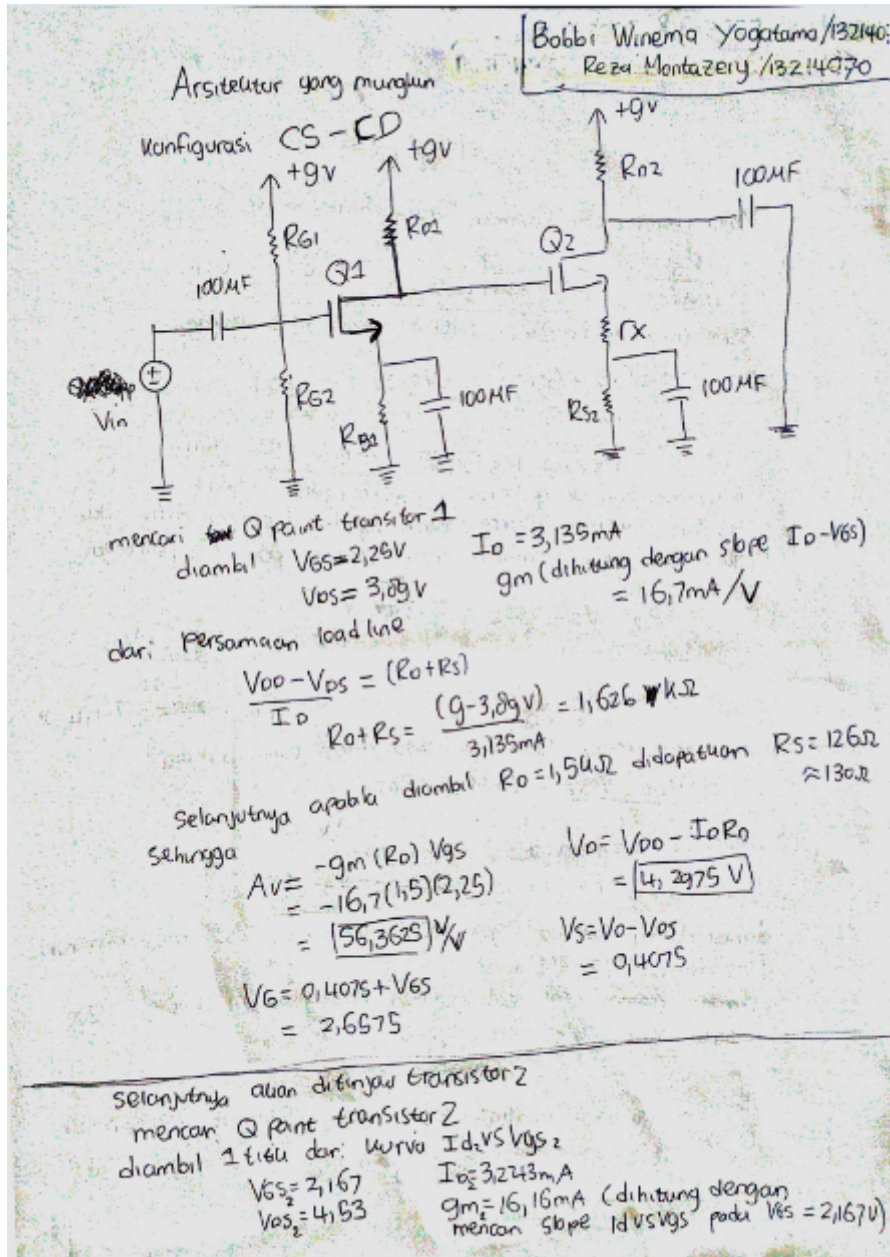 Bobbi Winema Yogatama/132140
Reza Montazery/13214070
Arsitektur yang mungkin
Konfigurasi CS-CD
+9V
+9V
+9V
RG1
RD1
RD2
100MF
100MF
Q1
Q2
rx
Vin
RG2
100MF
RS2
100MF
mencari Q point transitor 1
diambil VGS=2,25V ID=3,135mA
VDS=3,89V gm (dihitung dengan slope ID-VGS)
= 16,7mA/V
dari persamaan loadline
VDD-VDS = (RD+RS)
ID
RD+RS= (9-3,89V) = 1,626 kΩ
3,135mA
Selanjutnya apabila diambil RD=1,5kΩ didapatkan RS=126Ω
≈130Ω
Sehingga
AV= -gm (RD) Vgs VD=VDD-IDRD
= -16,7(1,5)(2,25) = 4,2975 V
= 56,3625 V/V VS=VD-VDS
= 0,4075
VG=0,4075+VGS
= 2,6575
selanjutnya akan ditinjau transistor 2
mencari Q point transistor 2
diambil 1 titik dari kurva Id2 vs Vgs2
VGS2=2,167 ID2=3,2243mA
VDS2=4,53 gm2=16,16mA (dihitung dengan
mencari slope Id vs Vgs pada VGS=2,167V)